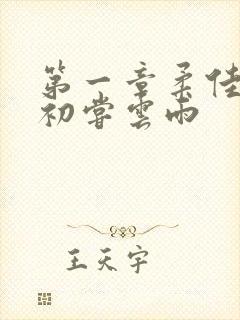 第一章柔佳
初嘗雲雨
王天宇